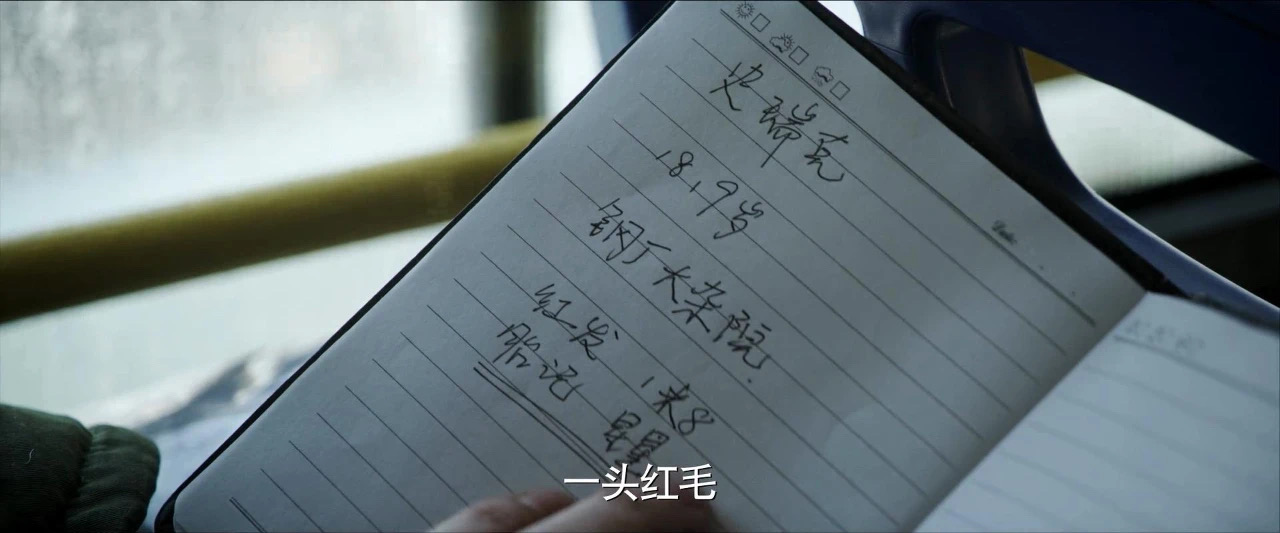 史瑞克
18,9岁
钢厂大杂院
红发 1米8
胎记 星星
一头红毛